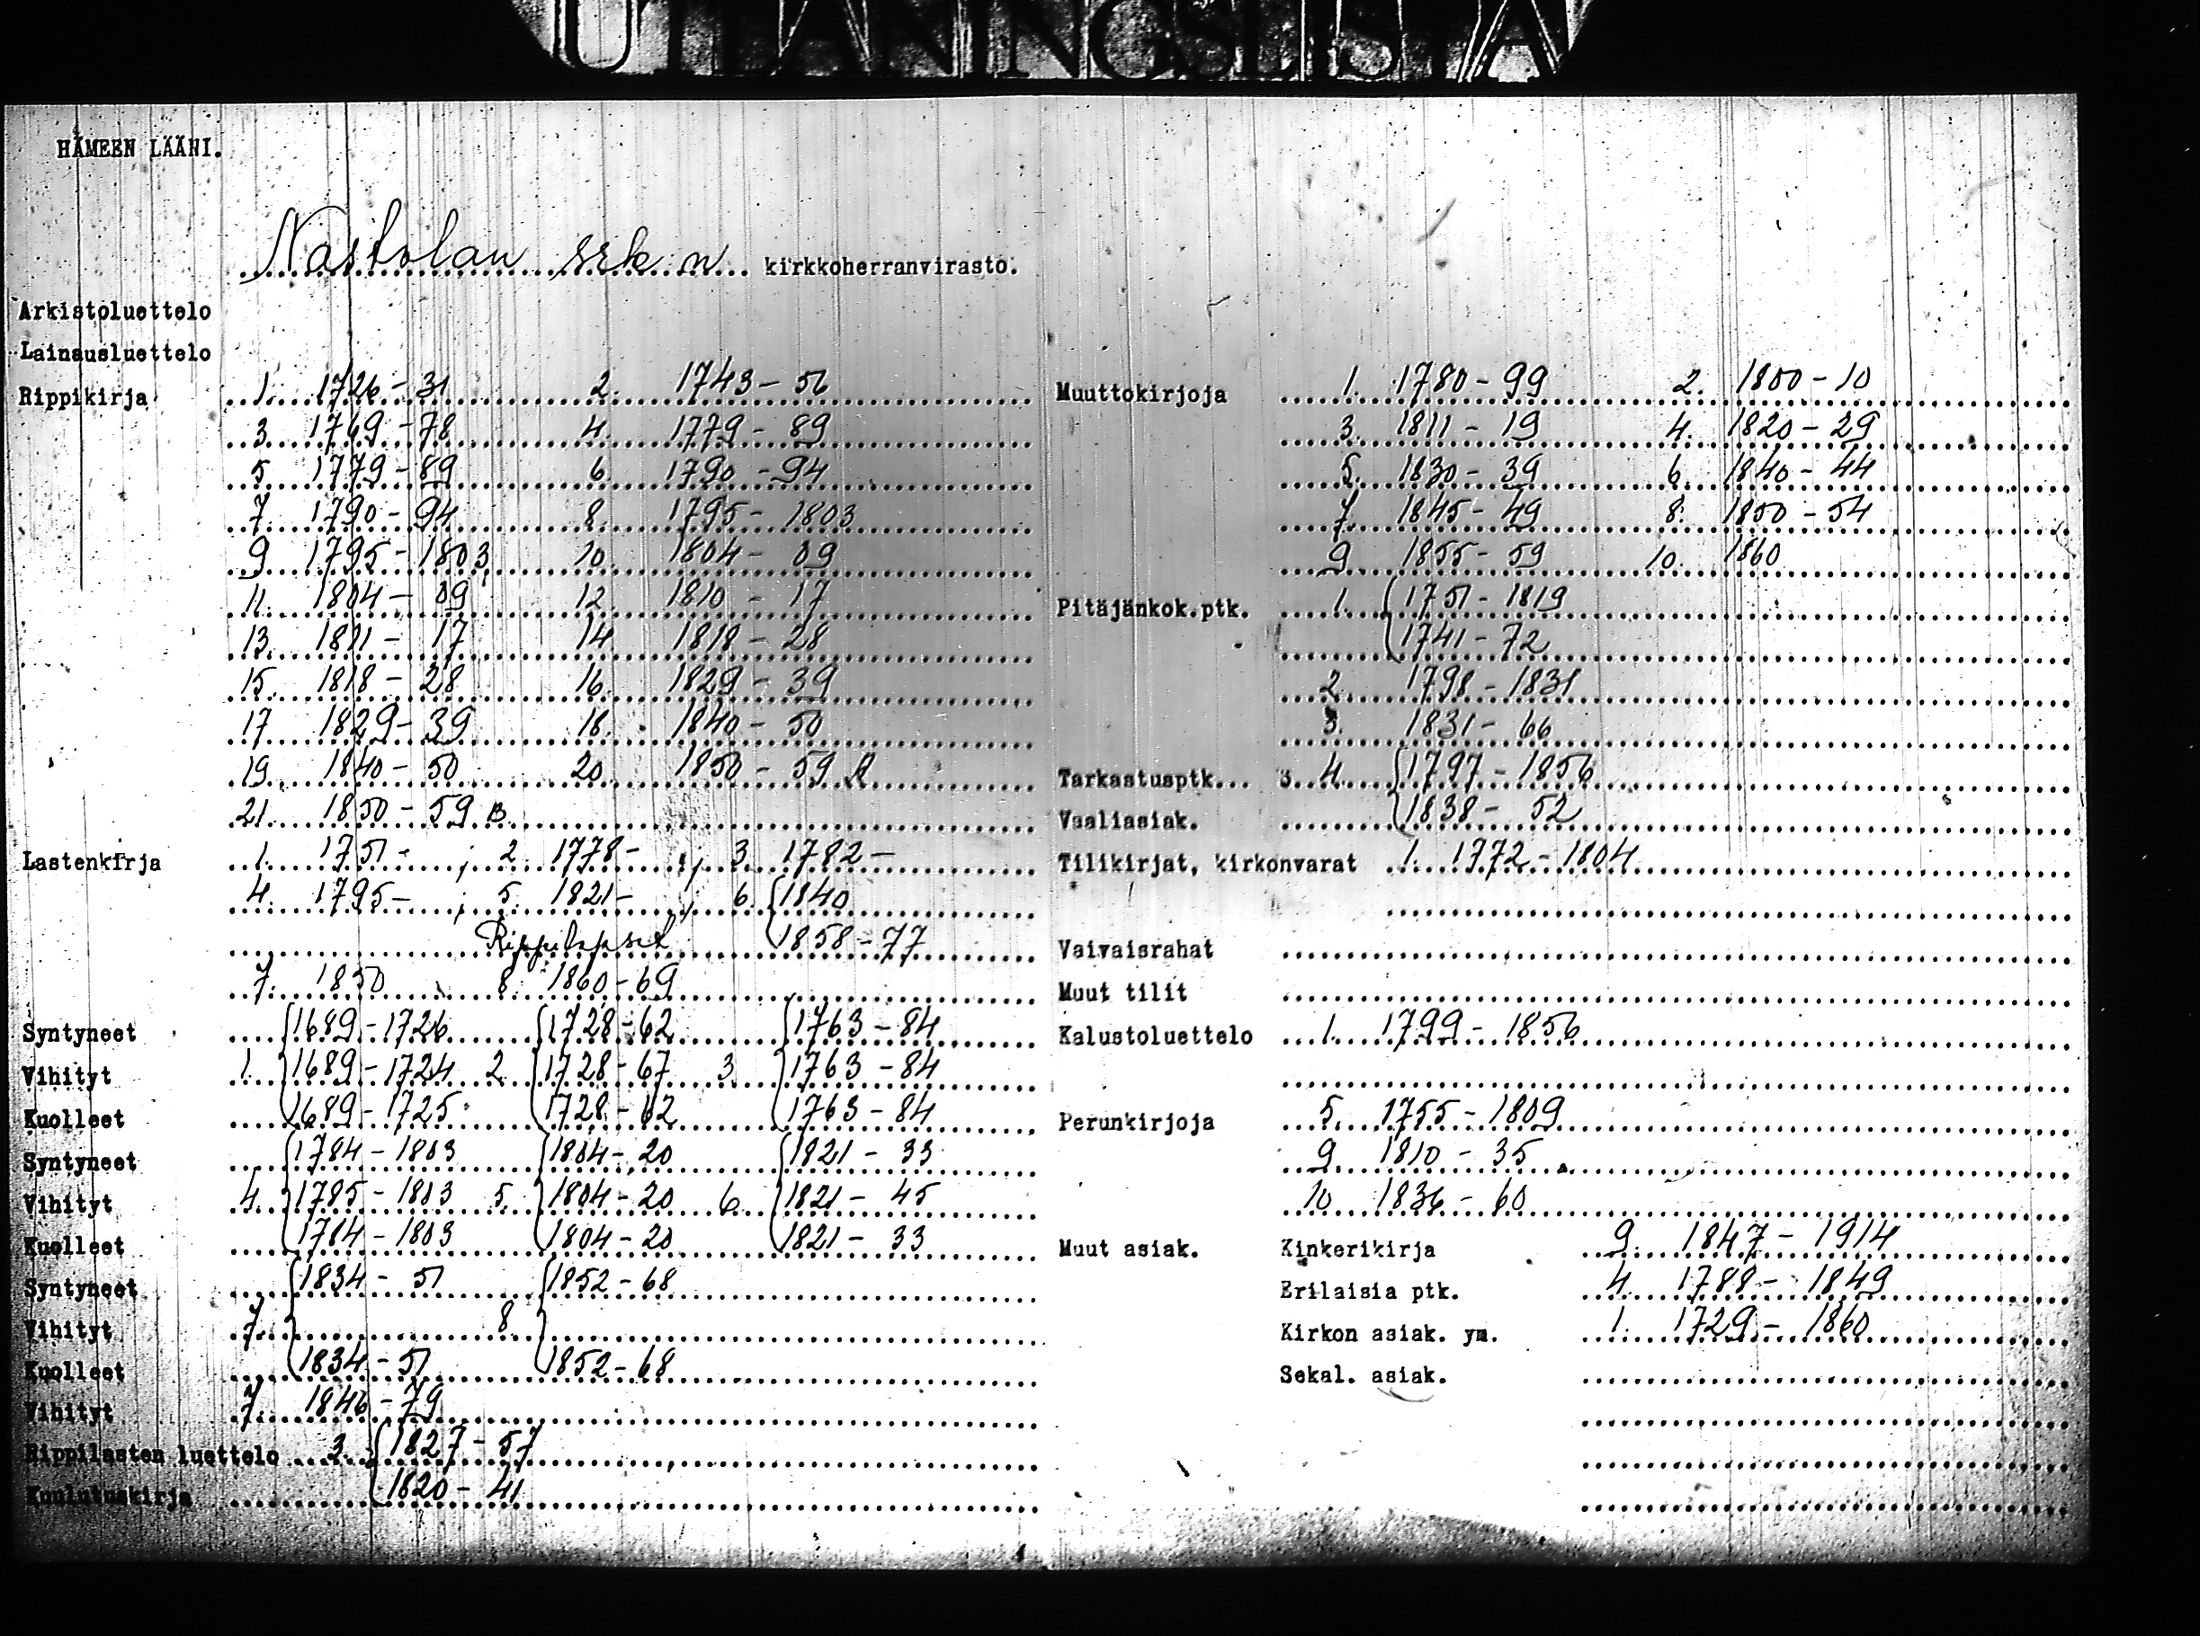 UTTANINGSLISTA
HÄMEEN LÄÄNI.
Nastolan srk:n kirkkoherranvirasto.
Arkistoluettelo
Lainausluettelo
Rippikirja 1. 1726-31 2. 1743-56
3. 1769-78 4. 1779-89
5 1779-89 6. 1790-94
7. 1790-94 8. 1795-1803
9 1795-1803 10. 1804-09
11. 1804-09 12. 1810-17
13. 1811-17 14. 1818-28
15. 1818-28 16. 1829-39
17 1829-39 18. 1840-50
19. 1840-50 20. 1850-59 A
21. 1850-59 B
Lastenkirja 1. 1751- ; 2. 1778- ; 3. 1782-
4. 1795- ; 5. 1821- ; 6. 1840
Rippilapset 1858-77
7. 1850 8. 1860-69
Syntyneet 1689-1726 1728-62 1763-84
Vihityt 1. 1689-1724 2. 1728-67 3. 1763-84
Kuolleet 1689-1725 1728-62 1763-84
Syntyneet 1784-1803 1804-20 1821-33
Vihityt 4. 1785-1803 5. 1804-20 6. 1821-45
Kuolleet 1784-1803 1804-20 1821-33
Syntyneet 1834-51 1852-68
Vihityt 7. 8.
Kuolleet 1834-51 1852-68
Vihityt 7. 1846-79
Rippilasten luettelo 3. 1827-57
Kuulutuskirja 1820-41
Muuttokirjoja 1. 1780-99 2. 1800-10
3. 1811-19 4. 1820-29
5. 1830-39 6. 1840-44
7. 1845-49 8. 1850-54
9 1855-59 10. 1860
Pitäjänkok.ptk. 1. 1751-1819
1741-72
2. 1798-1831
3. 1831-66
Tarkastusptk... 3. 4. 1797-1856
Vaaliasiak. 1838-52
Tilikirjat, kirkonvarat 1. 1772-1804
Vaivaisrahat
Muut tilit
Kalustoluettelo 1. 1799-1856
Perunkirjoja 5. 1755-1809
9. 1810-35
10. 1836-60
Muut asiak. Kinkerikirja 9. 1847-1914
Erilaisia ptk. 4. 1788-1849
Kirkon asiak. ym. 1. 1729-1860
Sekal. asiak.